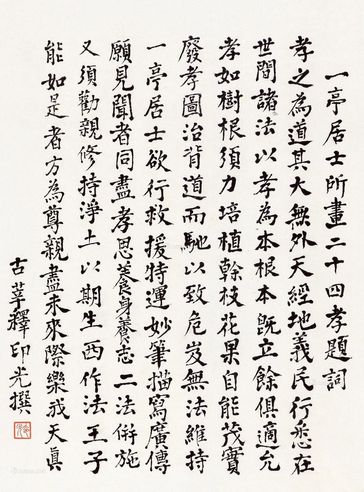 一亭居士所畫二十四孝題詞
孝之為道其大無外天經地義民行悉在
世間諸法以孝為本根本既立餘俱適允
孝如樹根須力培植榦枝花果自能茂實
廢孝圖治背道而馳以致危岌無法維持
一亭居士欲行救援特運妙筆描寫廣傳
願見聞者同盡孝思養身養志二法併施
又須勸親修持淨土以期生西作法王子
能如是者方為尊親盡未來際樂我天真
古莘釋印光撰